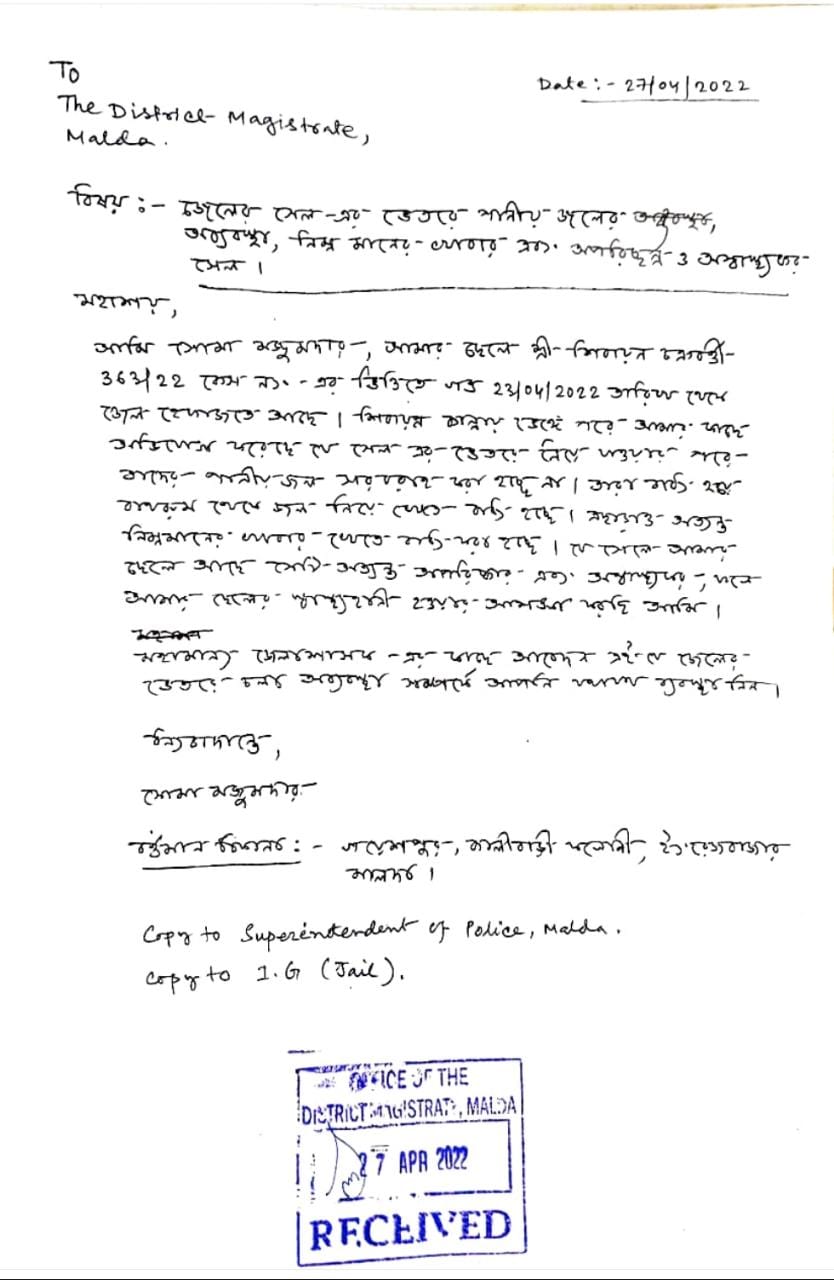 To
Date :- 27/04/2022
The District Magistrate,
Malda.
বিষয় :- জেলের সেল-এর ভেতরে পানীয় জলের
অব্যবস্থা, নিম্ন মানের খাবার এবং অপরিচ্ছন্ন ও অস্বাস্থ্যকর
সেল ।
মহাশয়,
আমি সোমা মজুমদার, আমার ছেলে শ্রী শিবায়ন চক্রবর্ত্তী
363/22 কেস নং - এর ভিত্তিতে গত 23/04/2022 তারিখ থেকে
জেল হেফাজতে আছে । শিবায়ন কান্নায় ভেঙ্গে পরে আমার কাছে
অভিযোগ করেছে যে সেল এর ভেতরে নিয়ে যাওয়ার পরে
তাদের পানীয় জল সরবরাহ করা হচ্ছে না । তারা বাধ্য হয়ে
বাথরুম থেকে জল নিয়ে খেতে বাধ্য হচ্ছে । এছাড়াও অত্যন্ত
নিম্নমানের খাবার খেতে বাধ্য করা হচ্ছে । যে সেলে আমার
ছেলে আছে সেটি অত্যন্ত অপরিষ্কার এবং অস্বাস্থ্যকর, ফলে
আমার ছেলের স্বাস্থ্যহানী হওয়ার আশঙ্কা করছি আমি ।
মহামান্য জেলাশাসক - এর কাছে আবেদন এই যে জেলের
ভেতরে চলা অব্যবস্থা সম্পর্কে আপনি যথাযথ ব্যবস্থা নিন ।
ধন্যবাদান্তে,
সোমা মজুমদার
বর্ত্তমান ঠিকানা :- গয়েশপুর, কালীবাড়ী কলোনী, ইংরেজবাজার
মালদা ।
Copy to Superintendent of Police, Malda.
Copy to I.G (Jail).
OFFICE OF THE
DISTRICT MAGISTRATE, MALDA
27 APR 2022
RECEIVED